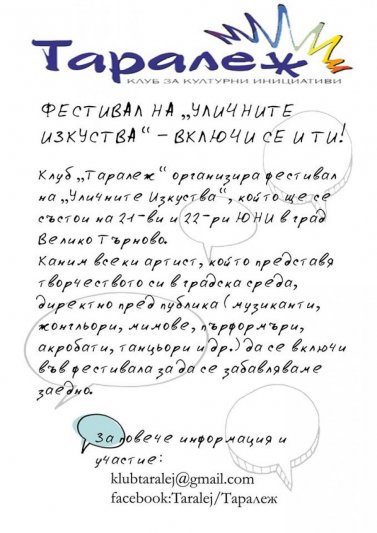 Таралеж
КЛУБ ЗА КУЛТУРНИ ИНИЦИАТИВИ
ФЕСТИВАЛ НА „УЛИЧНИТЕ
ИЗКУСТВА“ – ВКЛЮЧИ СЕ И ТИ!
Клуб „Таралеж“ организира фестивал
на „Уличните Изкуства“, който ще се
състои на 21-ви и 22-ри ЮНИ в град
Велико Търново.
Каним всеки артист, който представя
творчеството си в градска среда,
директно пред публика (музиканти,
жонгльори, мимове, пърформъри,
акробати, танцьори и др.) да се включи
във фестивала за да се забавляваме
заедно.
За повече информация и
участие:
klubtaralej@gmail.com
facebook:Taralej/Таралеж